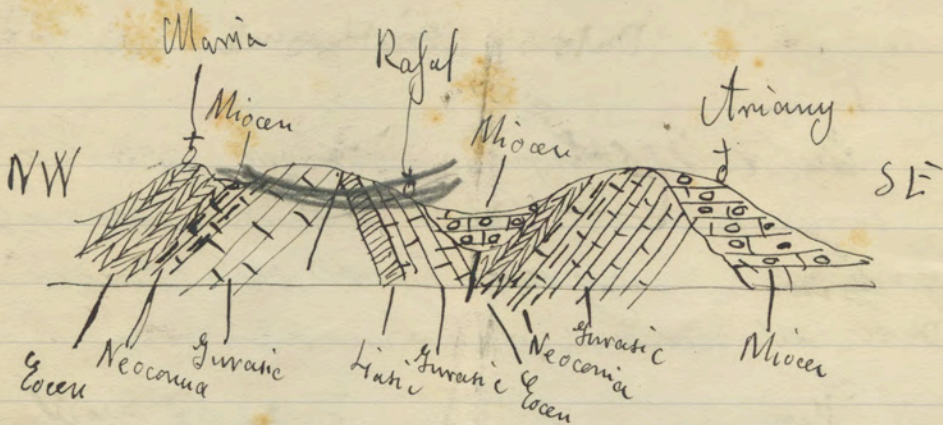 Maria
Rafal
Ariany
Miocen
Miocen
NW
SE
Eocen
Neocomia
Jurasic
Liasic
Jurasic
Eocen
Neocomia
Jurasic
Miocen